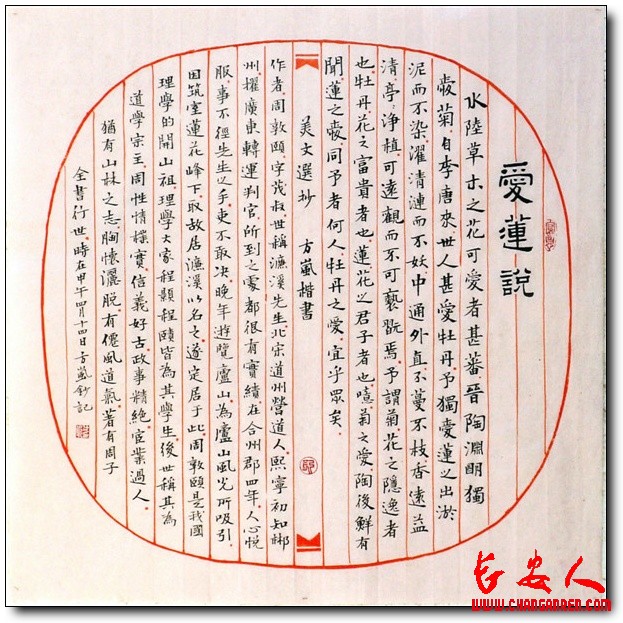 愛蓮說
水陸草木之花可愛者甚蕃晉陶淵明獨
愛菊自李唐來世人甚愛牡丹予獨愛蓮之出淤
泥而不染濯清漣而不妖中通外直不蔓不枝香遠益
清亭淨植可遠觀而不可褻翫焉予謂菊花之隱逸者
也牡丹花之富貴者也蓮花之君子者也噫菊之愛陶後鮮有
聞蓮之愛同予者何人牡丹之愛宜乎眾矣
美文選抄 方嵐楷書
作者周敦頤字茂叔世稱濂溪先生北宋道州營道人熙寧初知郴
州擢廣東轉運判官所到之處都很有實績在合州郡四年人心悅
服事不經先生之手吏不敢決晚年遊覽廬山為廬山風光所吸引
因筑室蓮花峰下取故居濂溪以名之遂定居于此周敦頤是我國
理學的開山祖理學大家程顥程頤皆為其學生後世稱其為
道學宗主周性情樸實信義好古政事精絶宦業過人
猶有山林之志胸懷灑脫有僊風道氣著有周子
全書行世時在甲午四月十四日方嵐鈔記
长安人
www.changanren.com